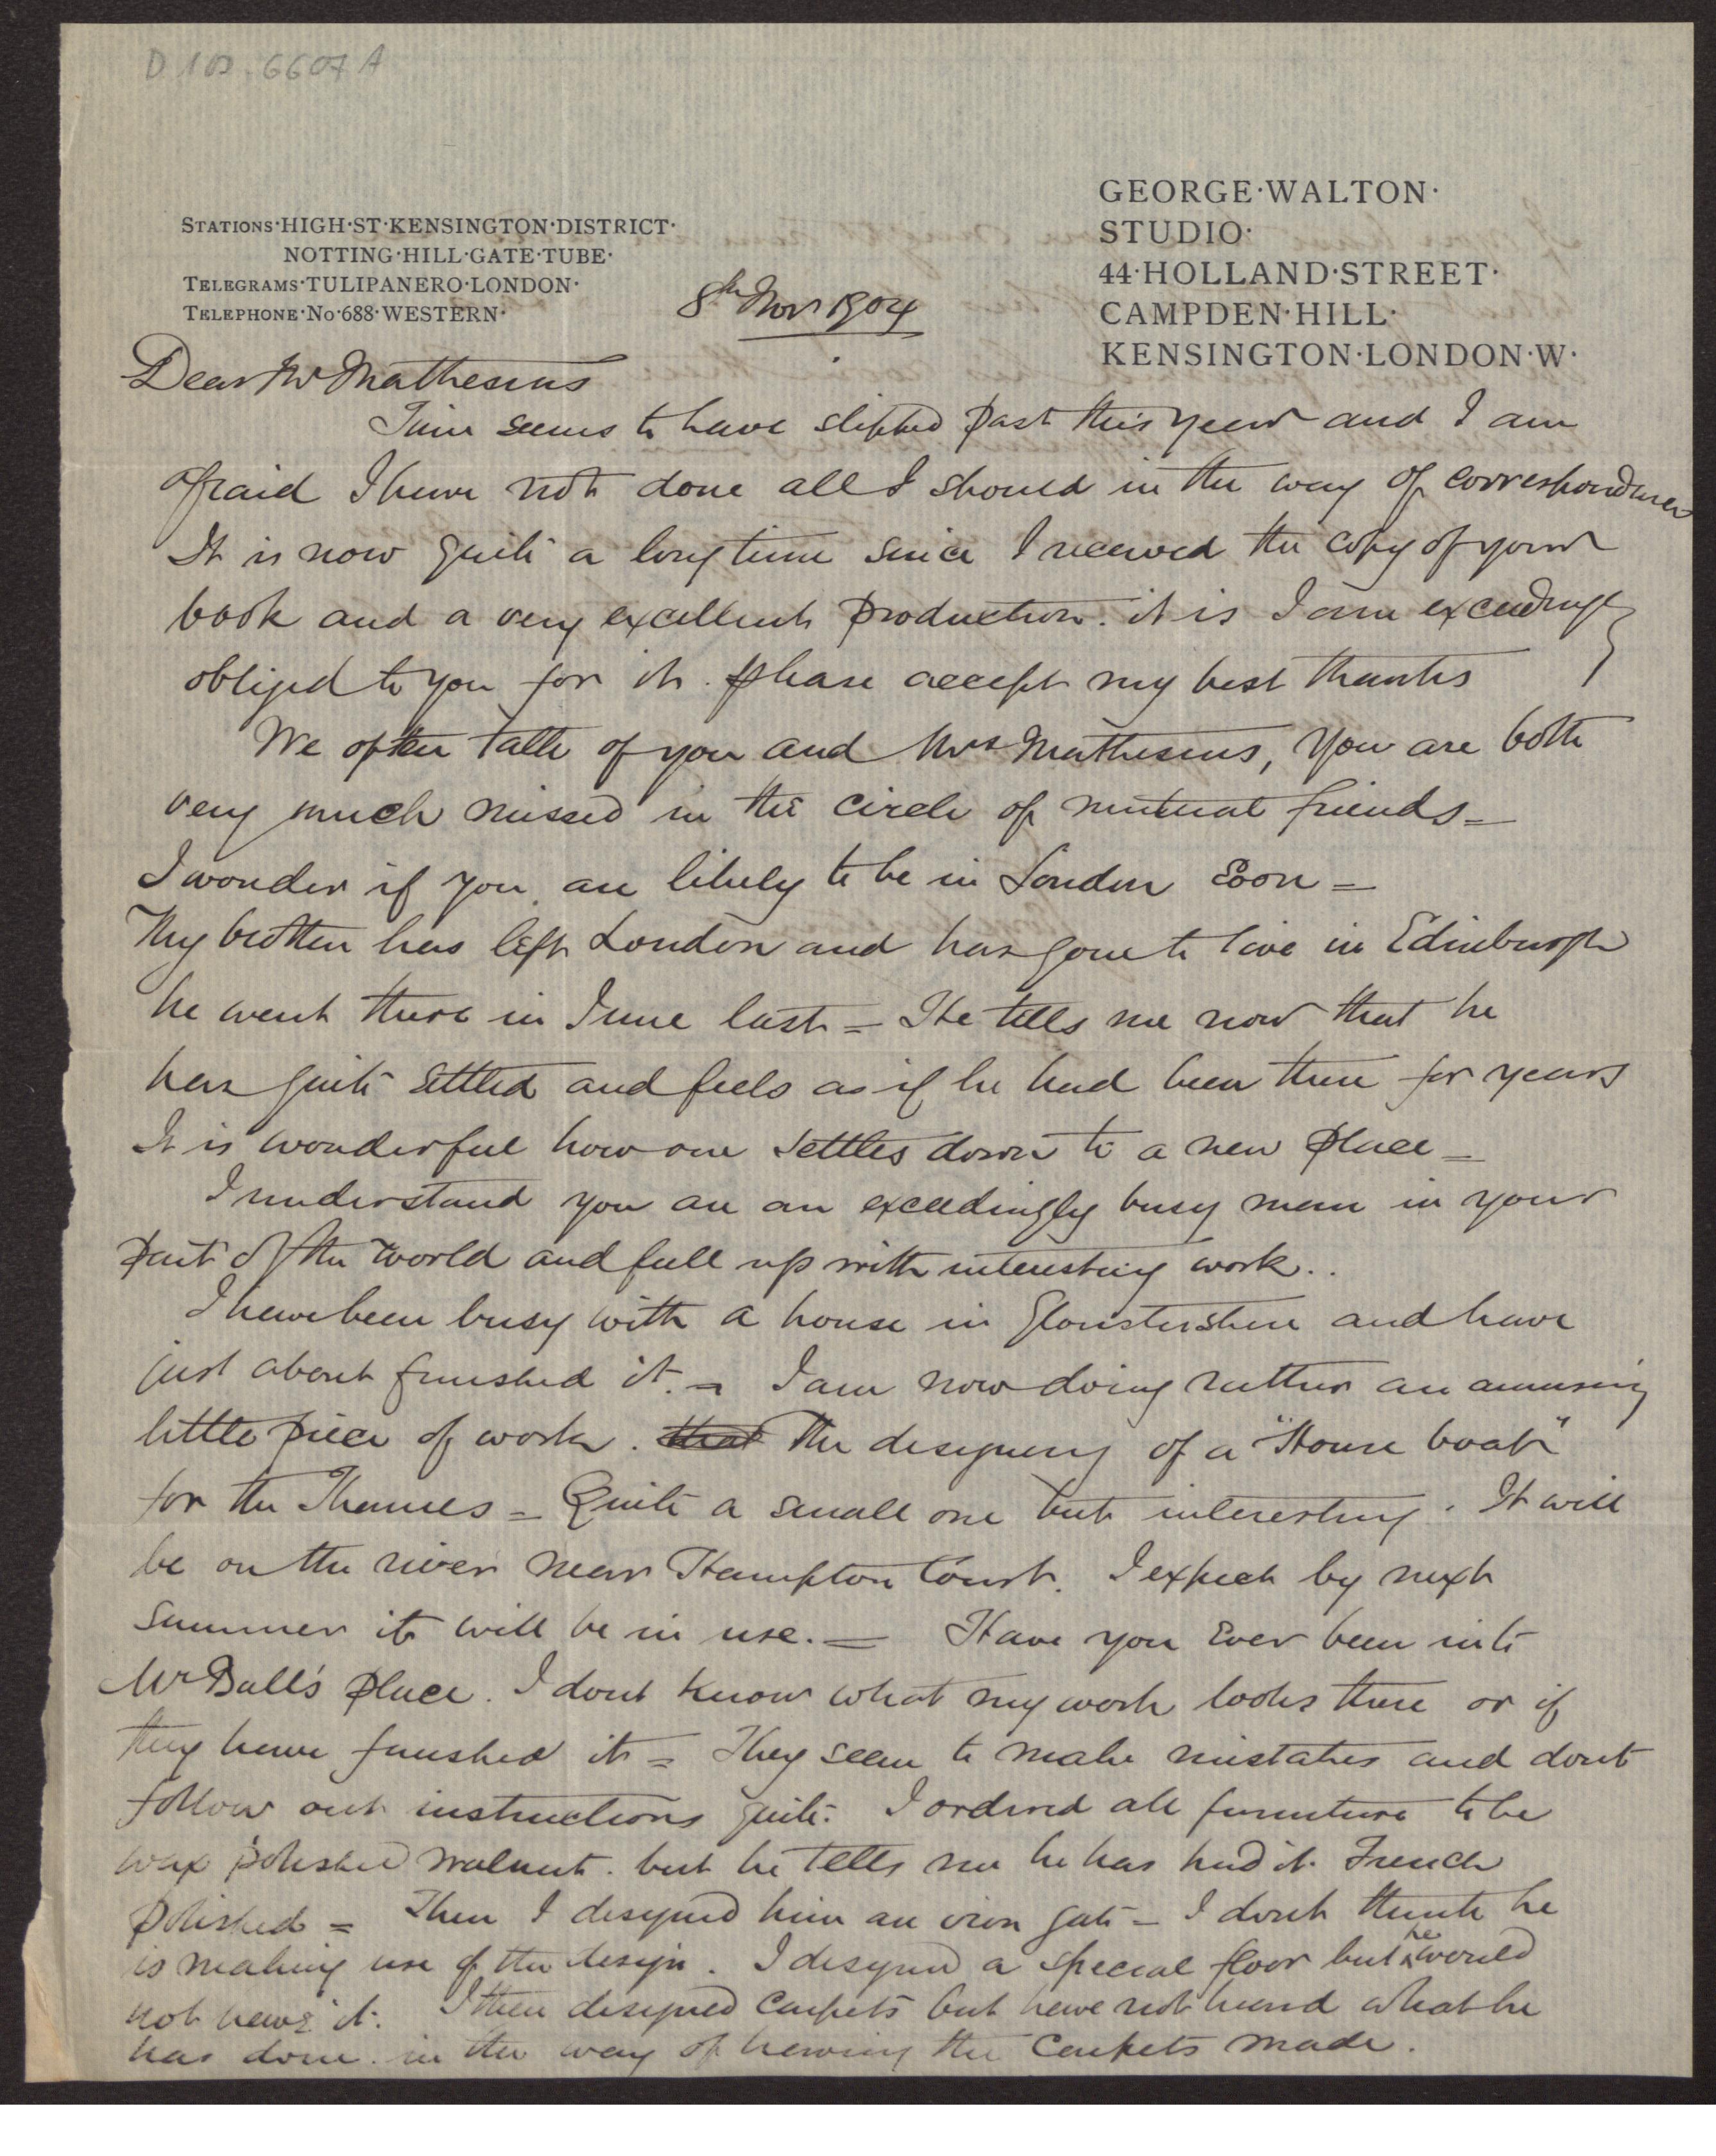 D 102-6607 A
STATIONS·HIGH·ST·KENSINGTON·DISTRICT·
NOTTING·HILL·GATE·TUBE·
TELEGRAMS·TULIPANERO·LONDON·
TELEPHONE·No·688·WESTERN·
GEORGE·WALTON·
STUDIO·
44·HOLLAND·STREET·
CAMPDEN·HILL·
KENSINGTON·LONDON·W·
8th Nov 1904
Dear Mr Mathesius
Time seems to have slipped past this year and I am
afraid I have not done all I should in the way of correspondence
It is now quite a long time since I received the copy of your
book and a very excellent production it is I am exceedingly
obliged to you for it. please accept my best thanks
We often talk of you and Mrs Mathesius, You are both
very much missed in the circle of mutual friends =
I wonder if you are likely to be in London soon =
My brother has left London and has gone to live in Edinburgh
he went there in June last = He tells me now that he
has quite settled and feels as if he had been there for years
It is wonderful how one settles down to a new place =
I understand you are an exceedingly busy man in your
part of the world and full up with interesting work..
I have been busy with a house in Gloustershire and have
just about finished it. = I am now doing rather an amusing
little piece of work. that The designing of a "House boat"
for the Thames = Quite a small one but interesting. It will
be on the river near Hampton Court. I expect by next
summer it will be in use. = Have you ever been into
Mr Bull's place. I dont know what my work looks there or if
they have finished it = They seem to make mistakes and dont
follow out instructions quite. I ordered all furniture to be
wax polished walnut. but he tells me he has had it French
polished = Then I designed him an iron gate = I dont think he
is making use of the design. I designed a special floor but he would
not have it. I then designed carpets but have not heard what he
has done in the way of having the carpets made.